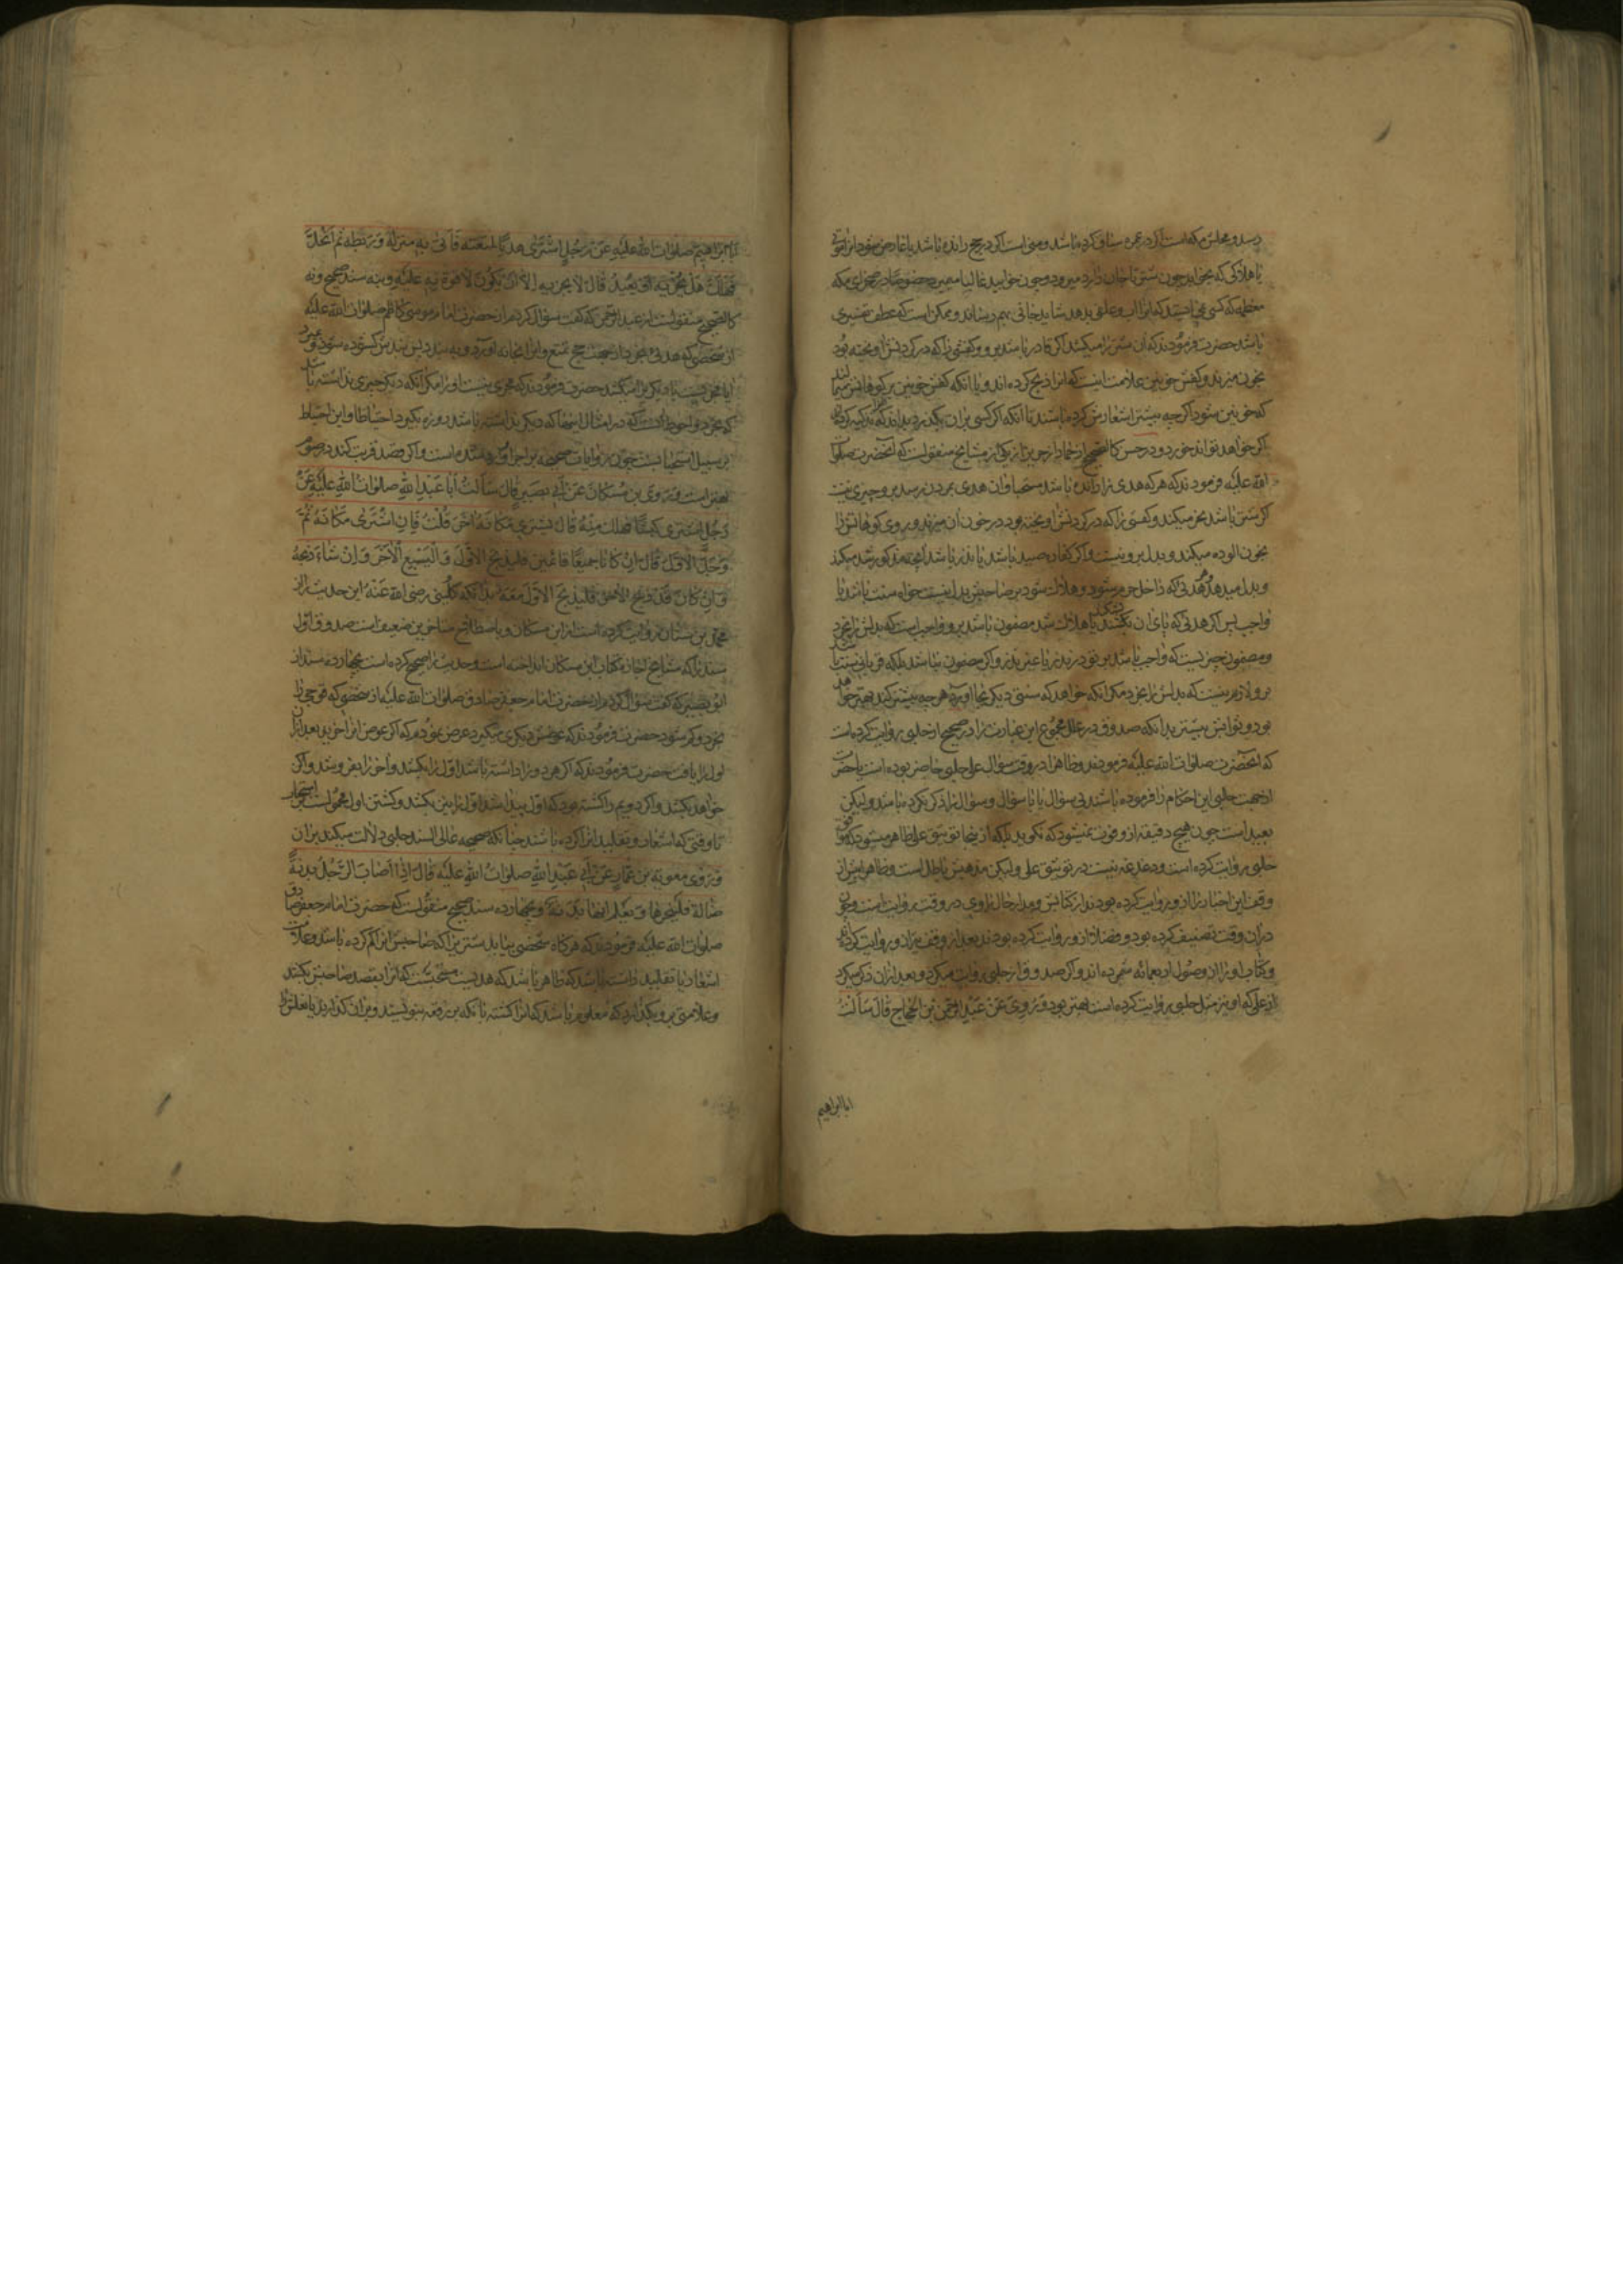 رسد و محلش مکه است اگر در عمره سیاق کرده باشد و منی است اگر در حج رانده باشد یا عارض میشود انرا
یا هلاکی که بخوابد چون شتر تا جان دارد میرود و چون خوابید غالبا میمیرد خصوصا در صحرای مکه
معظمه که کسی نمی ایستد که انرا اب و علف بدهد شاید جانی بهم رساند و ممکن است که عطف تفسیری
باشد حضرت فرمودند که ان شتر را میکشد اگر قادر باشد برو و کفشی را که در گردنش اویخته بود
بخون میزند و کفش خونین علامت اینست که انرا ذبح کرده اند و یا انکه کفش خونین بر کوهانش میمالند
که خونین شود اگر چه بیشتر اشعارش کرده باشند تا انکه اگر کسی بران بگذرد بداند که تذکیه کرده اند
اگر خواهد تواند خورد و در حسن کالصحیح از حماد از حریز از یکی از مشایخ منقولست که آنحضرت صلوات
الله علیه فرمودند که هر که هدی را رانده باشد مستحبا و ان هدی بمردن رسد برو چیزی نیست
اگر شتر باشد نحر میکند و کفشی را که در گردنش اویخته بود در خون ان میزند و بر روی کوهانش را
بخون الوده میکند و بدل برو نیست و اگر کفاره صید باشد یا نذر باشد انچه مذکور شد میکند
و بدل میدهد و هر هدی که داخل حرم شود و هلاک شود بر صاحبش بدل نیست خواه سنت باشد یا
واجب پس اگر هدئی که پای ان بشکند یا هلاک شد مضمون باشد برو واجب است که بدلش را بخرد
و مضمون چیزیست که واجب باشد برو در نذر یا غیر نذر و اگر مضمون نباشد بلکه قربانی سنت باشد
برو لازم نیست که بدلش را بخرد مگر انکه خواهد که سنتی دیگر بجا اورد و هر چه بیشتر کند بهتر خواهد
بود و ثوابش بیشتر بدانکه صدوق در علل مجموع این عبارت را در صحیح از حلبی روایت کرده است
که آنحضرت صلوات الله علیه فرمودند و ظاهرا در وقت سؤال علی حلبی حاضر بوده است یا حضرت
از جهت حلبی این احکام را فرموده باشند بی سؤال یا با سؤال و سؤال را ذکر نکرده باشد و لیکن
بعید است چون هیچ دقیقه از و فوت نمیشود که نگوید بلکه از اینجا توثیق علی ظاهر میشود که
حلبی روایت کرده است و دغدغه نیست در توثیق علی و لیکن مذهبش باطل است و ظاهرا پیش از
وقف این اخبار را از و روایت کرده بودند از کتابش و مدار حال راوی در وقت روایت است و چون
دران وقت تصنیف کرده بود و فضلا از و روایت کرده بودند بعد از وقف نیز از و روایت کردند
و کتاب او را از اصول اربعمائه شمرده اند و اگر صدوق از حلبی روایت میکرد و بعد ازان ذکر میکرد
از علی که او نیز مثل حلبی روایت کرده است بهتر بود وَرُوِيَ عَنْ عَبْدِ الرَّحْمٰنِ بْنِ الْحَجَّاجِ قَالَ سَأَلْتُ
اباابراهیم
أَبَا إِبْرَاهِيمَ صلوات الله عليه عَنْ رَجُلٍ اشْتَرٰى هَدْيًا لِمُتْعَتِهِ فَأَتٰى بِهِ مَنْزِلَهُ وَرَبَطَهُ ثُمَّ انْحَلَّ
فَهَلَكَ هَلْ يُجْزِيهِ أَوْ يُعِيدُ قَالَ لَا يُجْزِيهِ إِلَّا أَنْ يَكُونَ لَا قُوَّةَ بِهِ عَلَيْهِ و بنه سند صحیح و نه
کالصحیح منقولست از عبد الرحمن که گفت سؤال کردم از حضرت امام موسی کاظم صلوات الله علیه
از شخصی که هدئی بخرد از جهت حج تمتع و انرا بخانه اورد و به بندد پس بندش گشوده شود و بمیرد
ایا مجزیست یا دیگری را میکشد حضرت فرمودند که مجزی نیست او را مگر انکه دیگر چیزی نداشته باشد
که بخرد و احوط انست که در امثال اینها که دیگر نداشته باشد روزه بگیرد احتیاطا و این احتیاط
بر سبیل استحبابست چون روایات صحیحه بر اجزا وارد شده است و اگر قصد قربت کند در صوم
بهتر است وَرَوَى بْنُ مُسْكَانَ عَنْ أَبِي بَصِيرٍ قَالَ سَأَلْتُ أَبَا عَبْدِ اللهِ صلوات الله عليه عَنْ
رَجُلٍ اشْتَرٰى كَبْشًا فَهَلَكَ مِنْهُ قَالَ يَشْتَرِي مَكَانَهُ آخَرَ قُلْتُ فَإِنِ اشْتَرٰى مَكَانَهُ ثُمَّ
وَجَدَ الْأَوَّلَ قَالَ إِنْ كَانَا جَمِيعًا قَائِمَيْنِ فَلْيَذْبَحِ الْأَوَّلَ وَلْيَبِيعِ الْأَخِيرَ وَإِنْ شَاءَ ذَبَحَهُ
وَإِنْ كَانَ قَدْ ذَبَحَ الْأَخِيرَ فَلْيَذْبَحِ الْأَوَّلَ مَعَهُ بدانکه کلینی رضی الله عنه این حدیث را از
محمد بن سنان روایت کرده است از ابن مسکان و باصطلاح متاخرین ضعیف است صدوق اول
سند را که مشایخ اجازه کتاب ابن مسکان انداخته است و حدیث را صحیح کرده است بچهارده سند از
ابو بصیر که گفت سؤال کردم از حضرت امام جعفر صادق صلوات الله علیه از شخصی که قوچی را
بخرد و گم شود حضرت فرمودند که عوضش دیگری میگیرد عرض نمودم که اگر عوض انرا خرید بعد ازان
اول را یافت حضرت فرمودند که اگر هر دو را داشته باشد اول را بکشد و اخر را بفروشد و اگر
خواهد بکشد و اگر دویم را کشته بود که اول پیدا شد اول را نیز بکشد و کشتن اول محمولست بر استحباب
تا وقتی که اشعار و تقلید انرا کرده باشد چنانکه صحیحه عالی السند حلبی دلالت میکند بران
وَرَوٰى مُعَوِيَةُ بْنُ عَمَّارٍ عَنْ أَبِي عَبْدِ اللهِ صلوات الله عليه قَالَ إِذَا أَصَابَ الرَّجُلُ بَدَنَةً
ضَالَّةً فَلْيَنْحَرْهَا وَيُعْلِمْ أَنَّهَا بَدَنَةٌ و بچهارده سند صحیح منقولست که حضرت امام جعفر صادق
صلوات الله علیه فرمودند که هر گاه شخصی بیابد شتری را که صاحبش انرا گم کرده باشد و علامت
اشعار یا تقلید داشته باشد که ظاهر باشد که هدیست مستحبست که انرا بقصد صاحبش بکشد
و علامتی برو بگذارد که معلوم باشد که انرا کشته تا انکه بر رقعه بنویسند و بران گذارند یا نعلش را